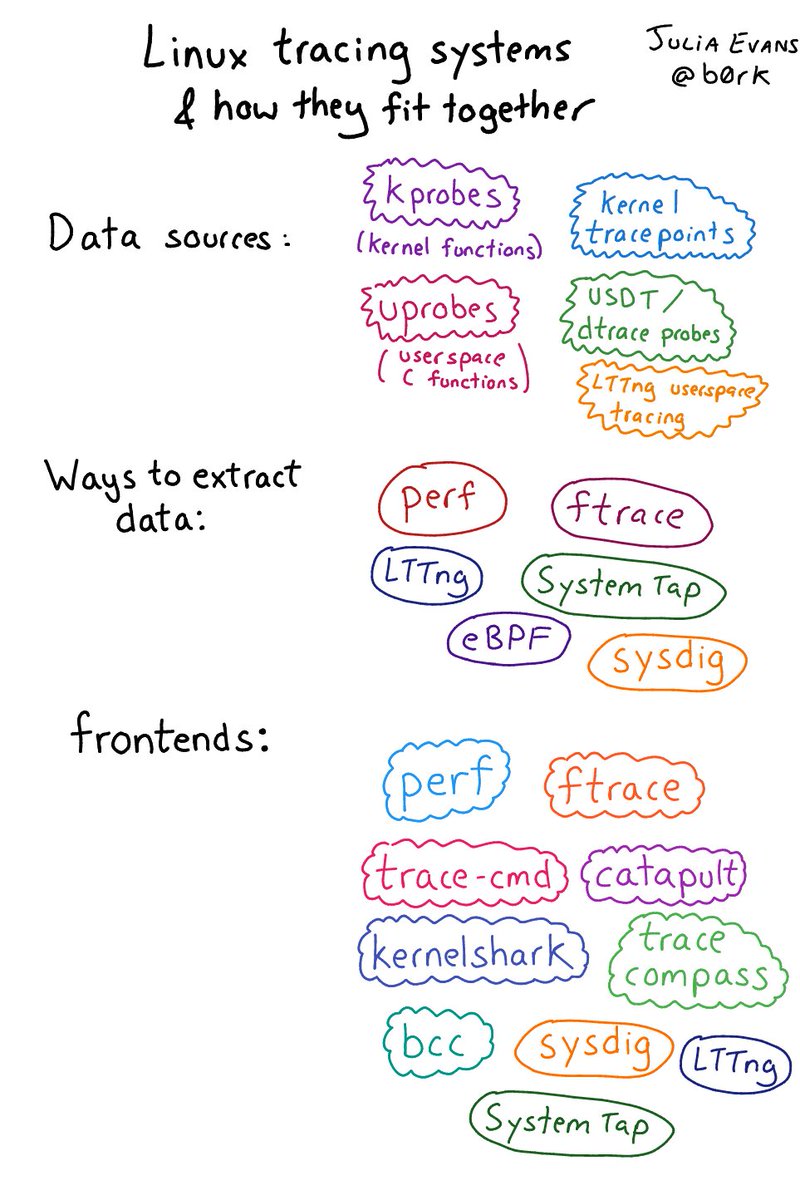 Linux tracing systems
& how they fit together
JULIA EVANS
@b0rk
Data sources:
kprobes
(kernel functions)
kernel
tracepoints
uprobes
(userspace
C functions)
USDT/
dtrace probes
LTTng userspace
tracing
Ways to extract
data:
perf
ftrace
LTTng
System Tap
eBPF
sysdig
frontends:
perf
ftrace
trace-cmd
catapult
kernelshark
trace
compass
bcc
sysdig
LTTng
System Tap